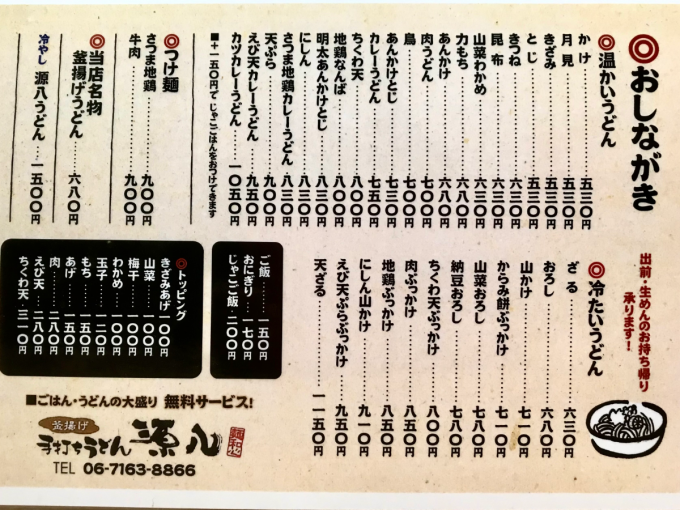 おしながき
温かいうどん
かけ……五三〇円
月見……五三〇円
きざみ……五三〇円
とじ……五三〇円
きつね……六三〇円
昆布……六三〇円
山菜わかめ……六三〇円
力もち……六八〇円
あんかけ……六八〇円
肉うどん……七〇〇円
鳥……七〇〇円
あんかけとじ……七三〇円
カレーうどん……七五〇円
ちくわ天……八〇〇円
地鶏なんば……八〇〇円
明太あんかけとじ……八三〇円
にしん……八三〇円
さつま地鶏カレーうどん……八三〇円
天ぷら……九〇〇円
えび天カレーうどん……九五〇円
カツカレーうどん……一〇五〇円
■+一五〇円で じゃこごはんをおつけできます
つけ麺
さつま地鶏……九〇〇円
牛肉……九〇〇円
当店名物
釜揚げうどん……六八〇円
冷やし 源八うどん……一五〇〇円
出前・生めんのお持ち帰り
承ります!
冷たいうどん
ざる……六三〇円
おろし……六八〇円
山かけ……七一〇円
からみ餅ぶっかけ……七一〇円
山菜おろし……七八〇円
納豆おろし……七八〇円
ちくわ天ぶっかけ……八〇〇円
肉ぶっかけ……八五〇円
地鶏ぶっかけ……八五〇円
にしん山かけ……九一〇円
えび天ぷらぶっかけ……九五〇円
天ざる……一一五〇円
ご飯……一五〇円
おにぎり……一七〇円
じゃこご飯…二〇〇円
トッピング
きざみあげ一〇〇円
山菜……一〇〇円
梅干……一〇〇円
わかめ…一〇〇円
玉子……一二〇円
もち……一五〇円
あげ……一五〇円
肉……二八〇円
えび天…二八〇円
ちくわ天 三一〇円
■ごはん・うどんの大盛り 無料サービス!
釜揚げ
手打ちうどん 源八
TEL 06-7163-8866